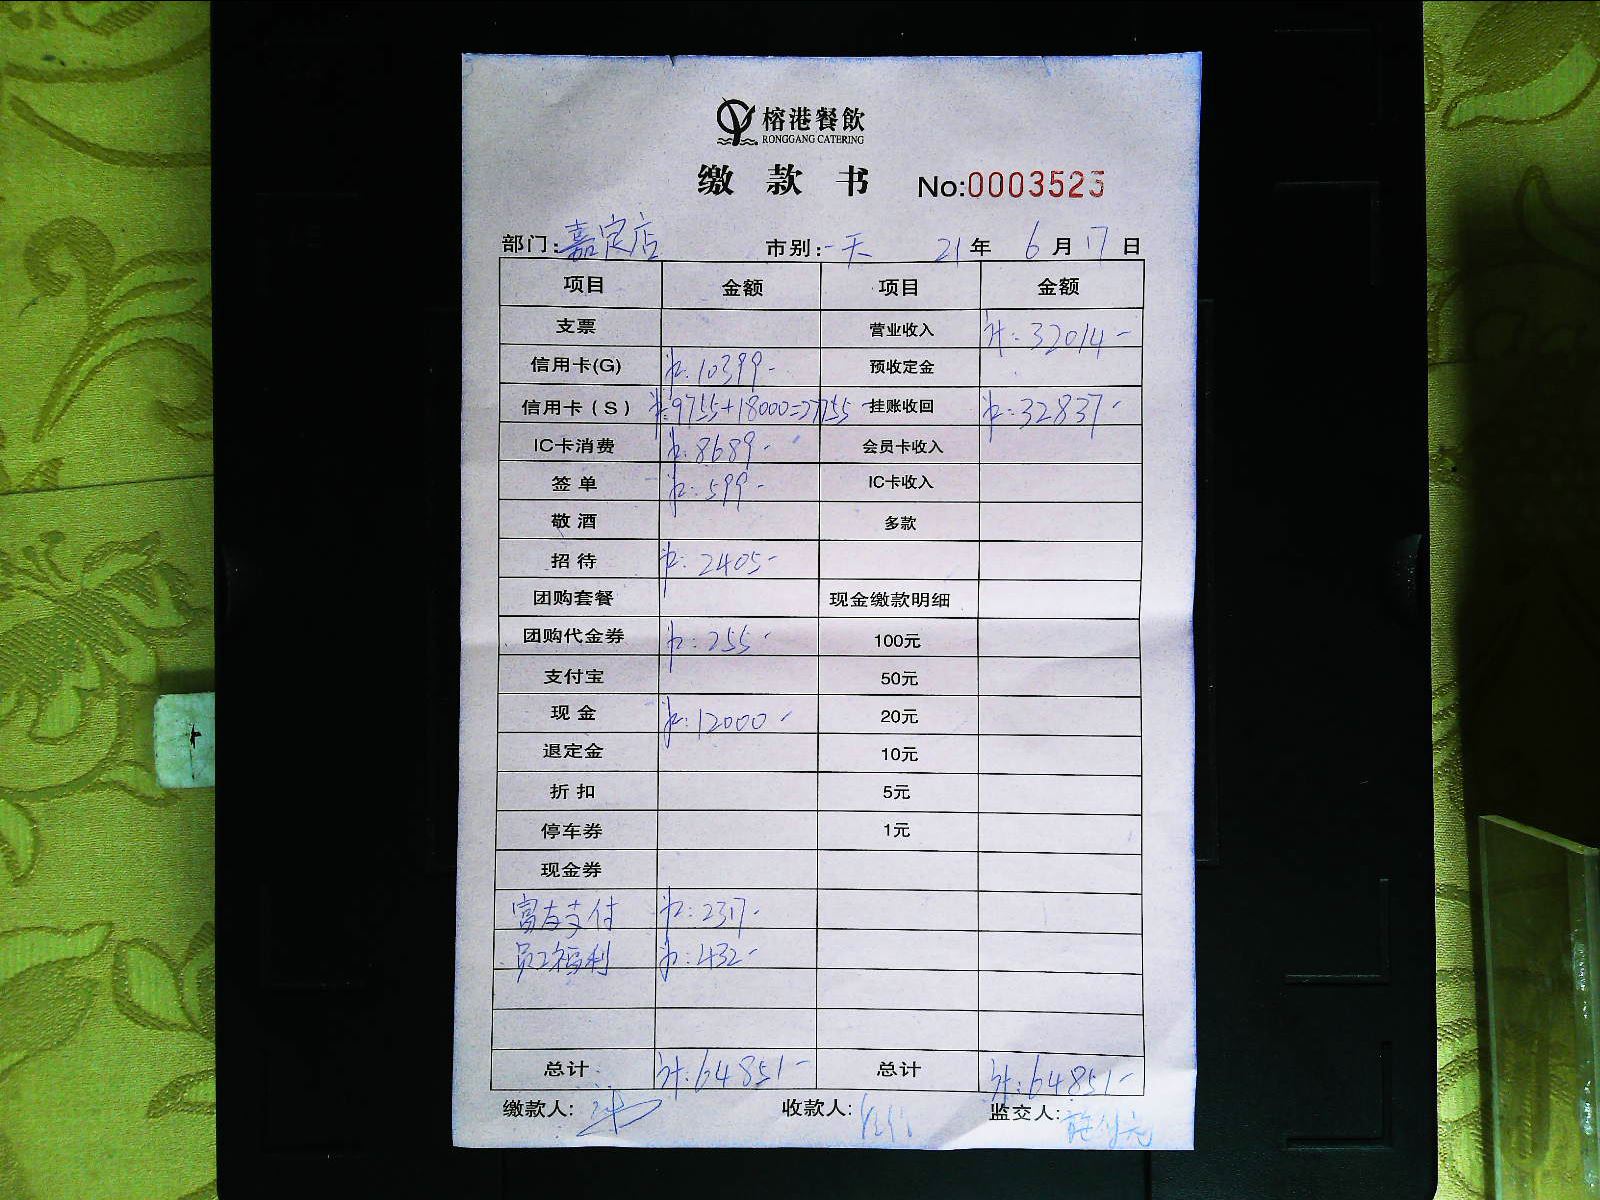 榕港餐飲
RONGGANG CATERING
缴款书 No:0003525
部门:嘉定店 市别:一天 21年6月17日
项目 金额 项目 金额
支票 营业收入 计:32014-
信用卡(G) 计:10399- 预收定金
信用卡(S) 计:9755+18000=27755- 挂账收回 计:32837-
IC卡消费 计:8689- 会员卡收入
签单 计:599- IC卡收入
敬酒 多款
招待 计:2405-
团购套餐 现金缴款明细
团购代金券 计:255- 100元
支付宝 50元
现金 计:12000- 20元
退定金 10元
折扣 5元
停车券 1元
现金券
富友支付 计:2317-
员工福利 计:432-
总计 计:64851- 总计 计:64851-
缴款人: 收款人: 监交人: